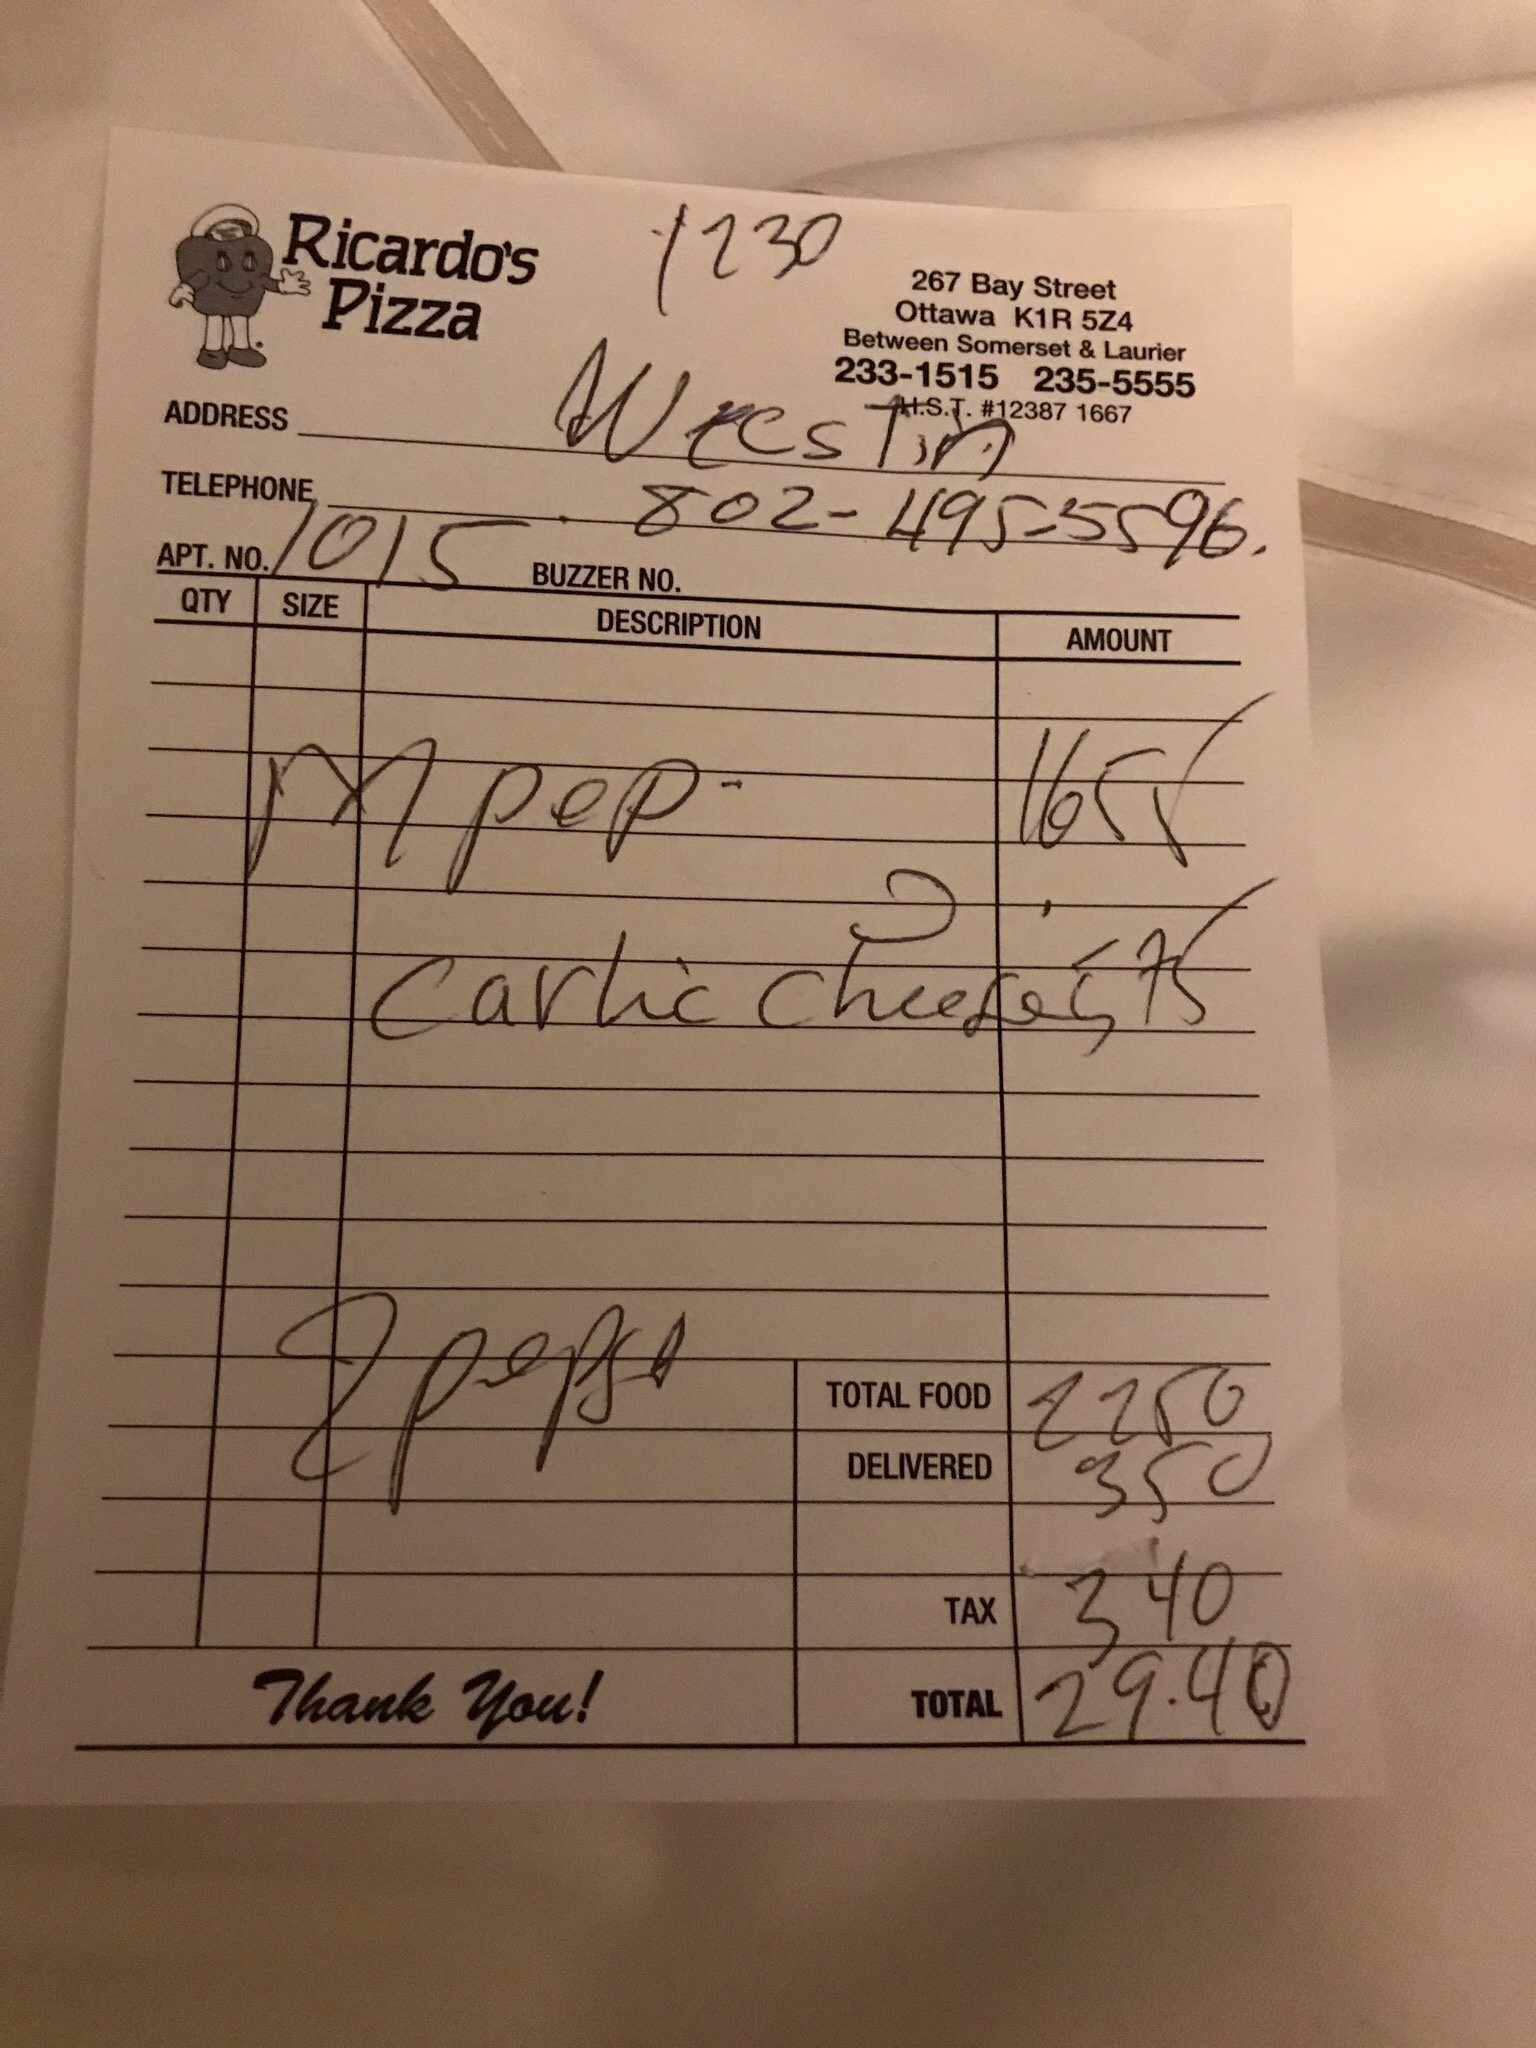 Ricardo's
Pizza
1230
267 Bay Street
Ottawa K1R 5Z4
Between Somerset & Laurier
233-1515 235-5555
H.S.T. #12387 1667
ADDRESS Westin
TELEPHONE 802-495-5596.
APT. NO. 1015 BUZZER NO.
QTY SIZE DESCRIPTION AMOUNT
M pep - 1655
Garlic cheese 5,75
2 pepsi
TOTAL FOOD 2250
DELIVERED 350
TAX 3 40
Thank You! TOTAL 29.40